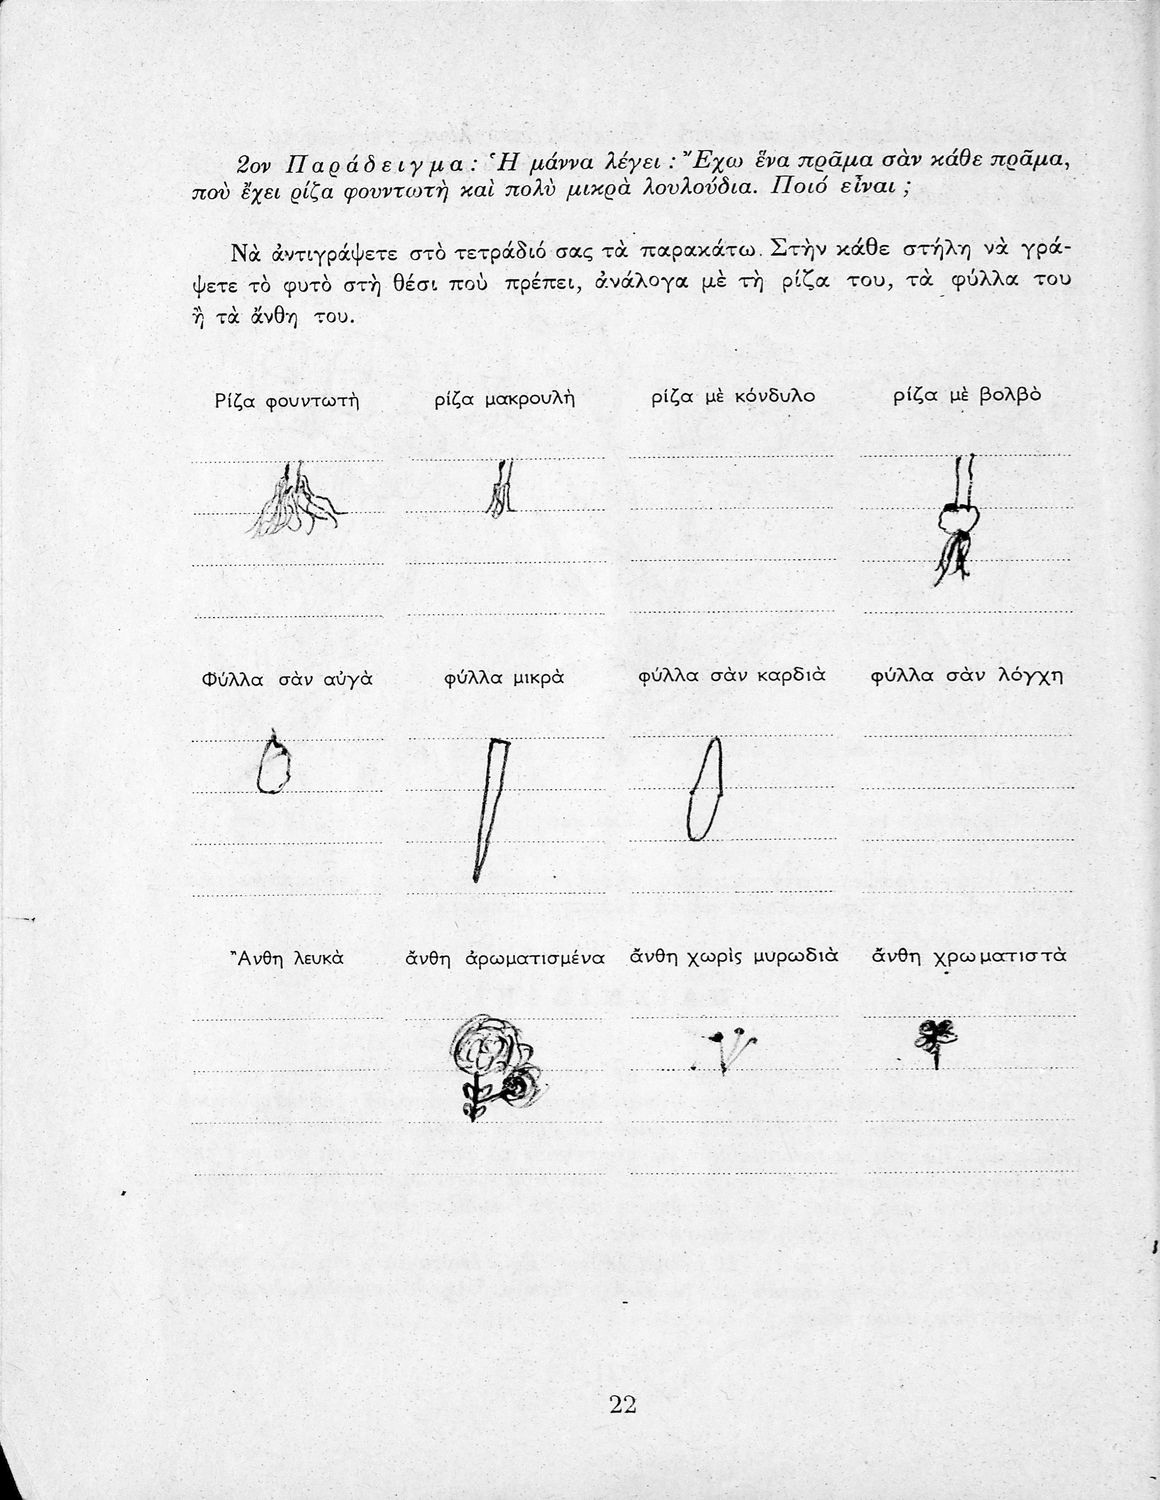 2ον Παράδειγμα: Ἡ μάννα λέγει: Ἔχω ἕνα πρᾶμα σὰν κάθε πρᾶμα,
ποὺ ἔχει ρίζα φουντωτὴ καὶ πολὺ μικρὰ λουλούδια. Ποιό εἶναι;
Νὰ ἀντιγράψετε στὸ τετράδιό σας τὰ παρακάτω. Στὴν κάθε στήλη νὰ γρά-
ψετε τὸ φυτὸ στὴ θέσι ποὺ πρέπει, ἀνάλογα μὲ τὴ ρίζα του, τὰ φύλλα του
ἢ τὰ ἄνθη του.
Ρίζα φουντωτὴ ρίζα μακρουλὴ ρίζα μὲ κόνδυλο ρίζα μὲ βολβὸ
Φύλλα σὰν αὐγὰ φύλλα μικρὰ φύλλα σὰν καρδιὰ φύλλα σὰν λόγχη
Ἄνθη λευκὰ ἄνθη ἀρωματισμένα ἄνθη χωρὶς μυρωδιὰ ἄνθη χρωματιστὰ
22